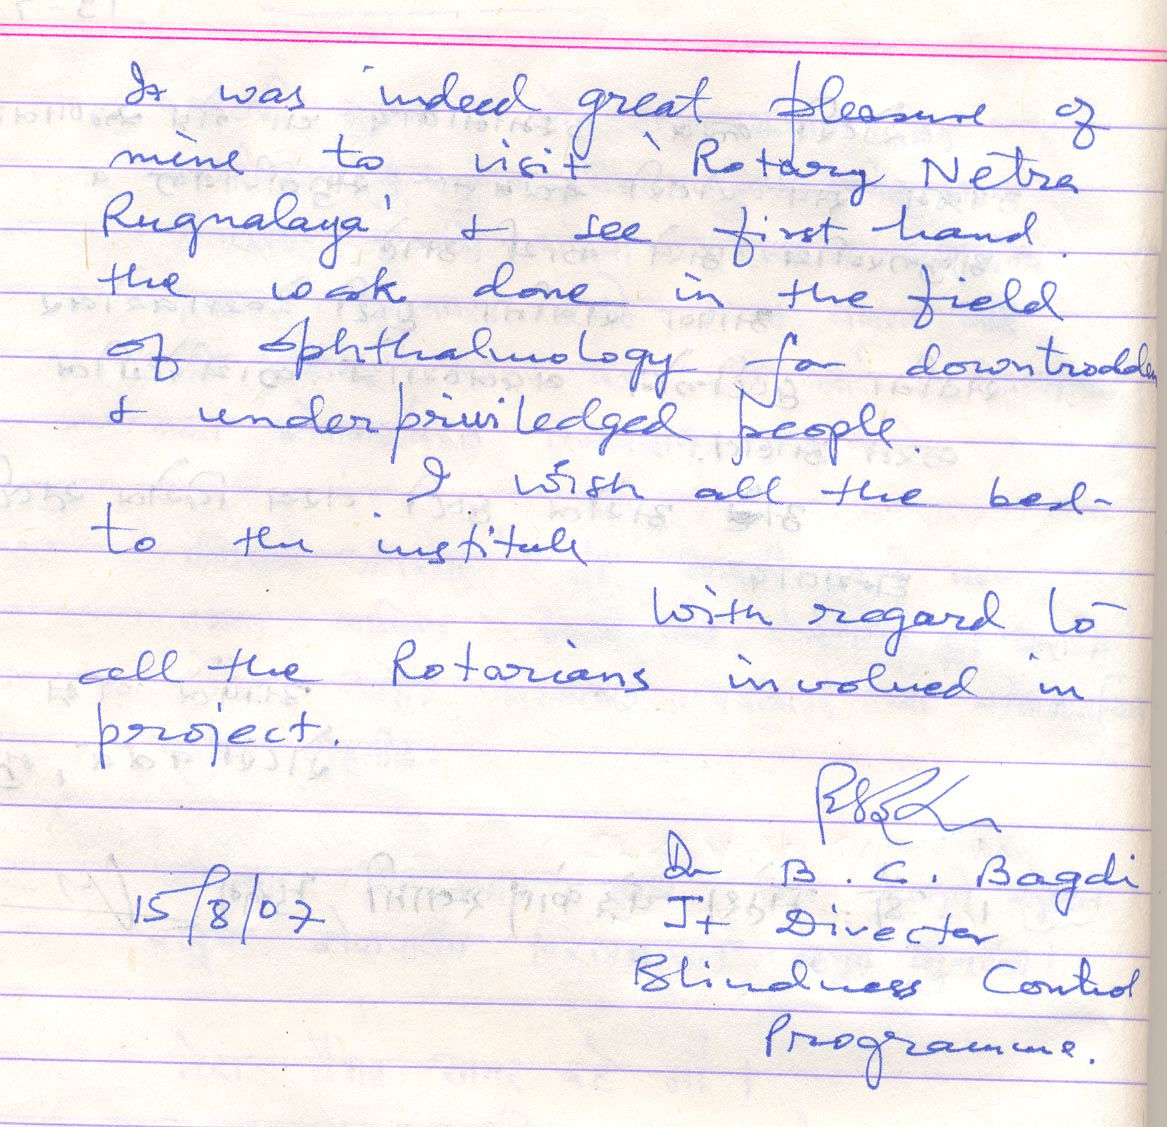 It was indeed great pleasure of
mine to visit 'Rotary Netra
Rugnalaya' & see first hand
the work done in the field
of Ophthalmology for downtrodden
& underpriviledged people.
I wish all the best
to the institute
With regard to
all the Rotarians involved in
project.
Dr B. C. Bagdi
15/8/07
Jt Director
Blindness Control
Programme.